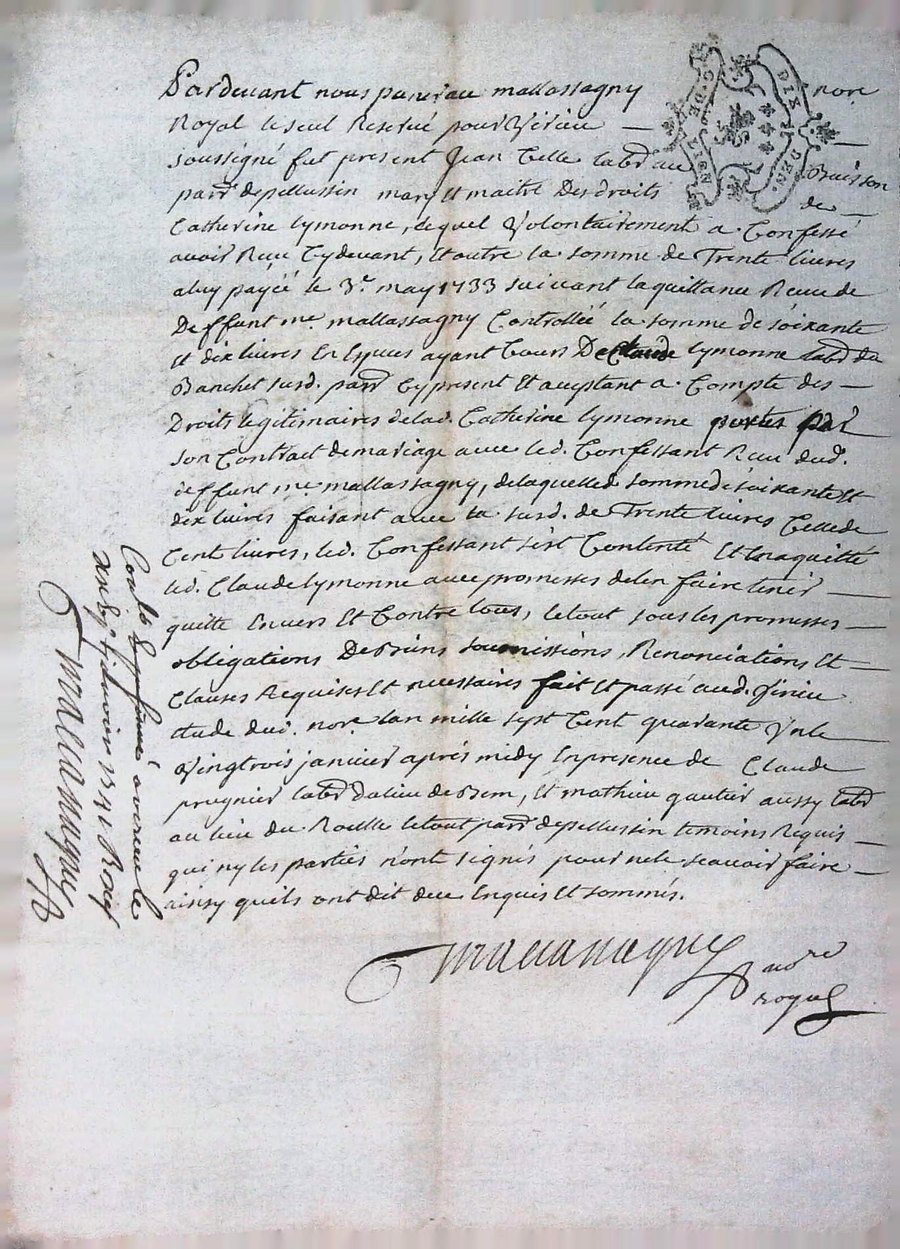 Pardevant nous mallassagny nore
Royal le seul Reservé pour Virieu
soussigné fut present Jean Celle labr au Buisson
parr de pellussin mary et maitre Des droits de
Catherine Lymonne, lequel Volontairement a Confessé
avoir Receu Cydevant, et outre la somme de Trente livres
a luy payéé le 3e. may 1733 suivant la quittance Receue de
Deffunt me. mallassagny Controlléé la somme de soixante
et dix livres En Espèces ayant Cours De Claude Lymonne labr du
Banchet susd. parr Cy present Et acceptant a Compte des
Droits legitimaires de lad. Catherine Lymonne portés par
son Contract de mariage avec led. Confessant Receu dud.
deffunt me. mallassagny, de laquelled sommede soixante et
dix livres faisant avec la susd. de Trente livres Celle de
Cent livres, led. Confessant s'est Contenté Et En a quitté
led. Claude Lymonne avec promesses de l'en faire tenir
quitte Envers Et Contre tous, le tout sous les promesses
obligations De Biens soumissions, Renonciations Et
Clauses Requises Et necessaires fait Et passé aud. Virieu
Etude dud. nore. l'an mille sept Cent quarante Un le
Vingtrois janvier aprés midy En presence de Claude
prugnier labr du lieu de Bem, Et mathieu gautier aussy labr
au lieu du Roelle le tout parr de pellussin temoins Requis
qui ny les parties n'ont signés pour ne le scavoir faire
ainsy quils ont dit de ce Enquis Et sommés.
mallassagny nore
royal
G. DE LION
DIX DEN.
Conlé à le
février 1741 Receu
mallassagny